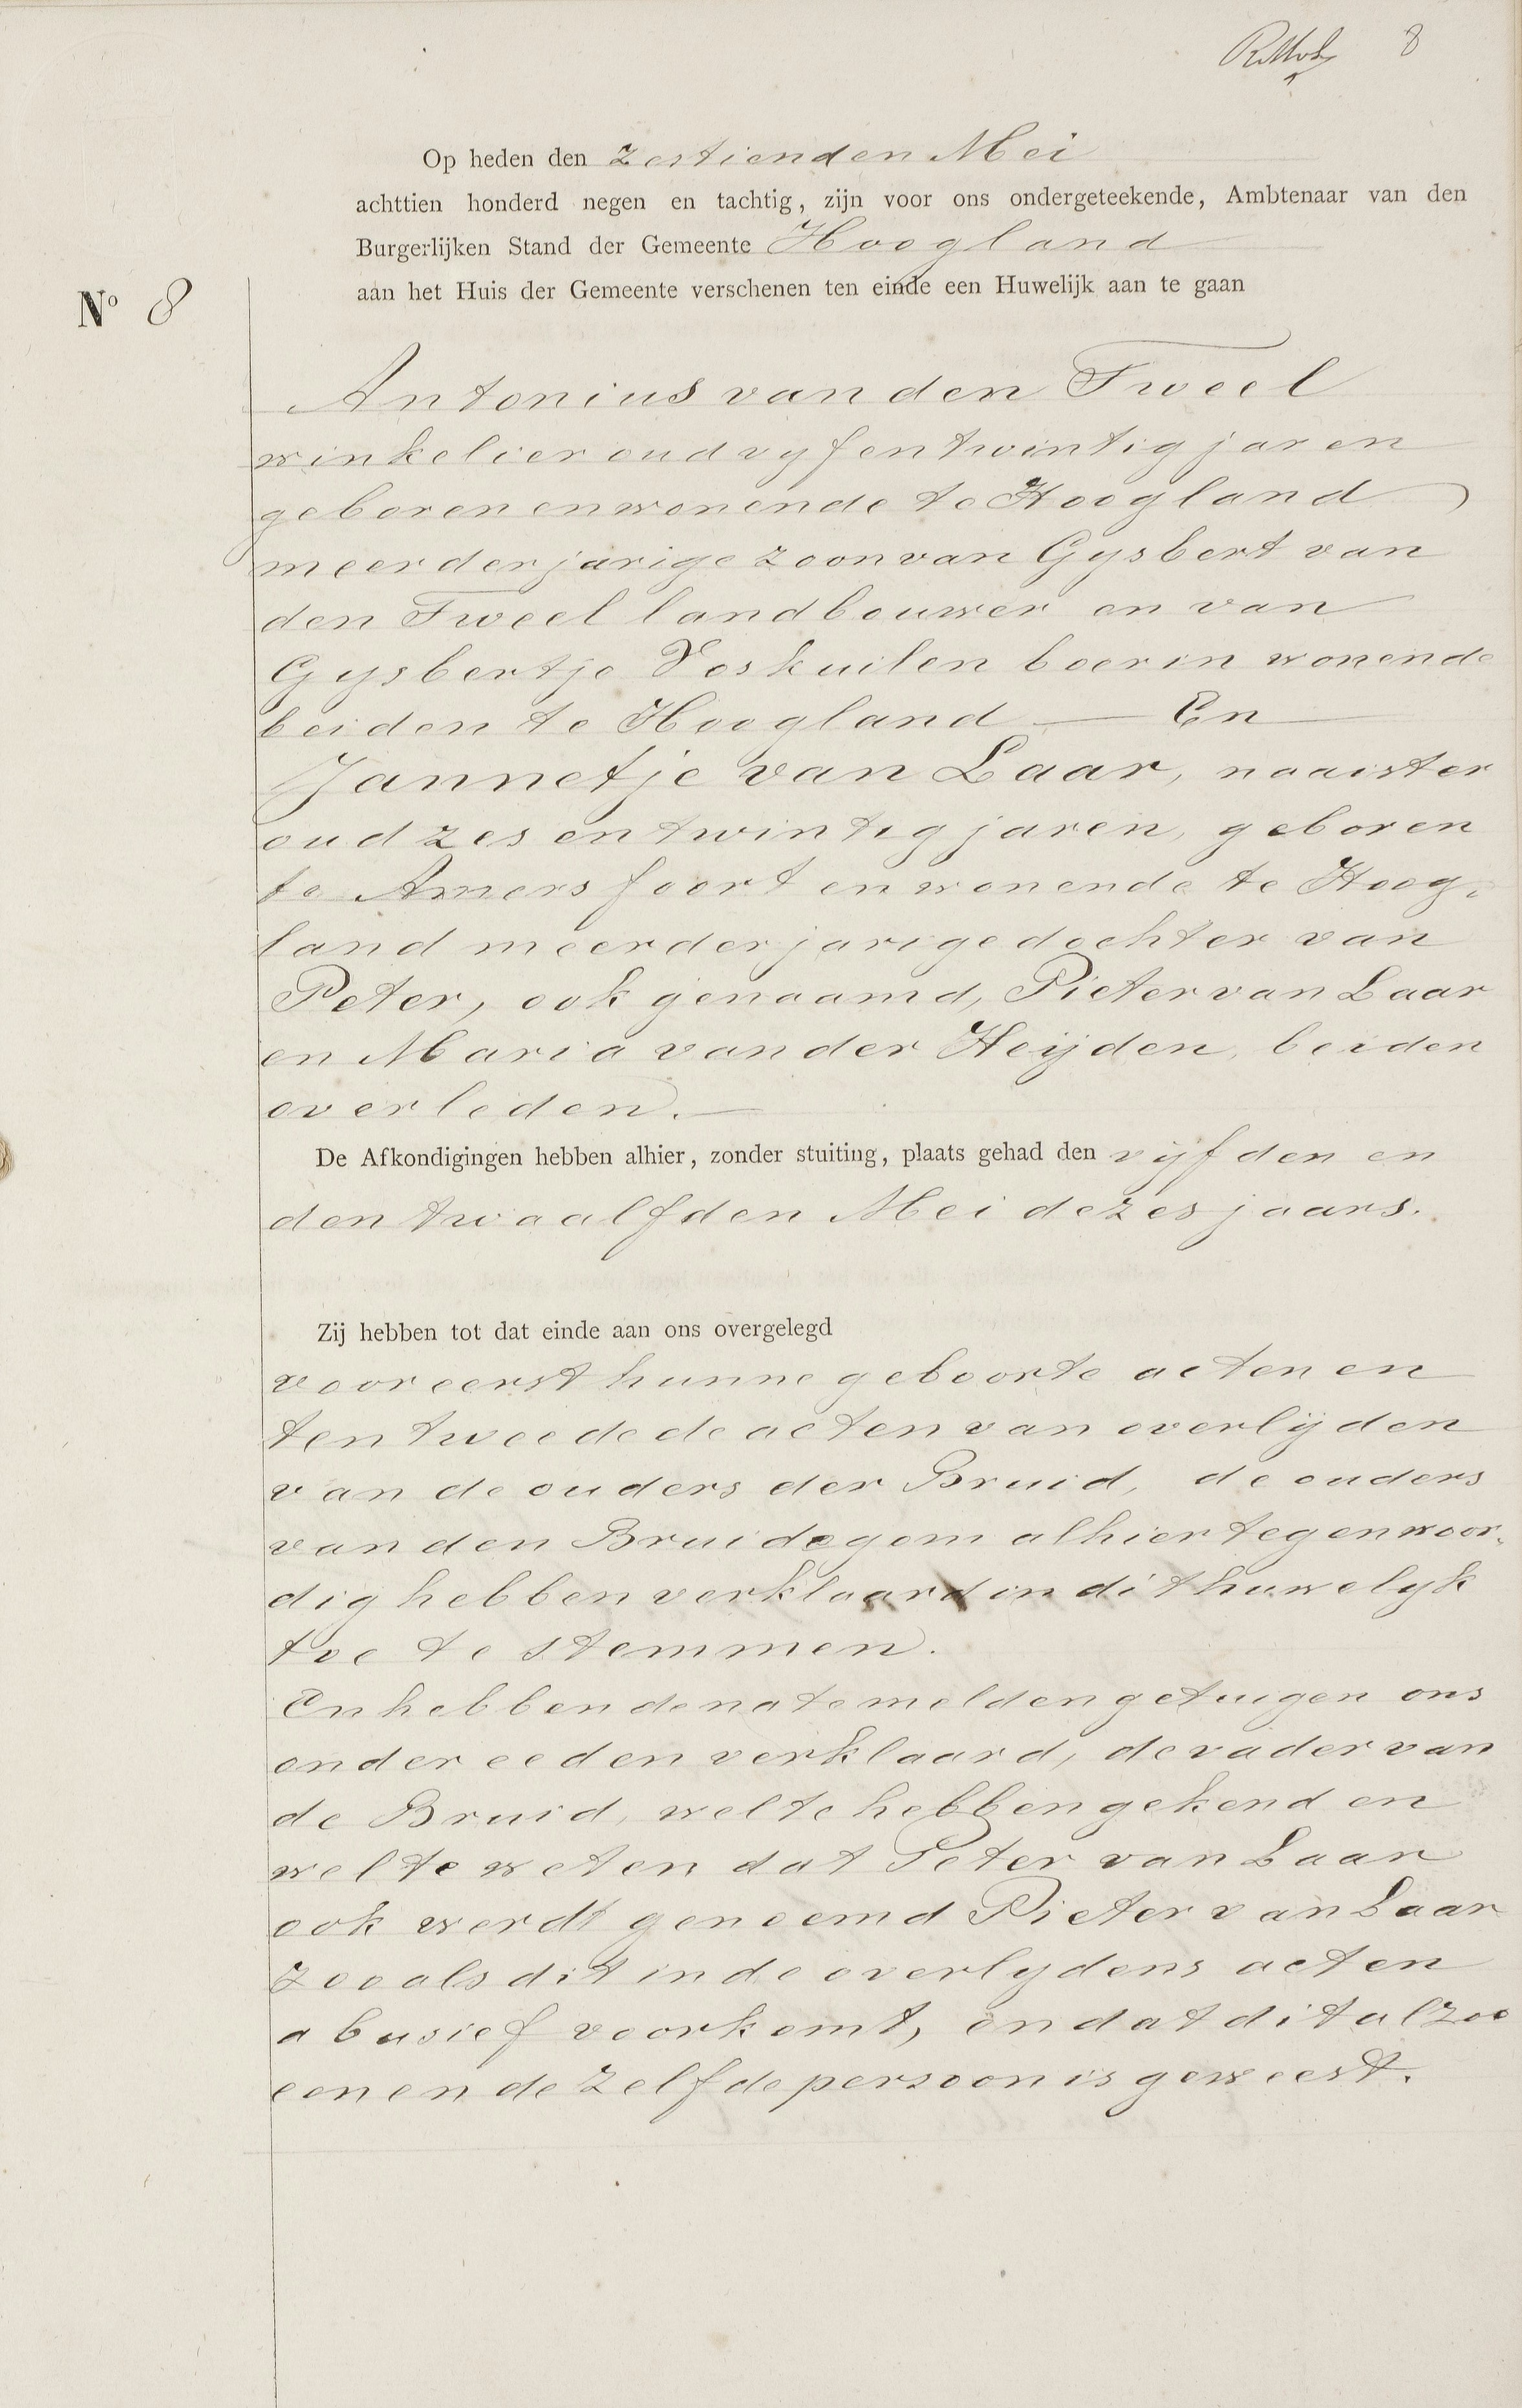 8
Op heden den zestienden Mei
achttien honderd negen en tachtig, zijn voor ons ondergeteekende, Ambtenaar van den
Burgerlijken Stand der Gemeente Hoogland
aan het Huis der Gemeente verschenen ten einde een Huwelijk aan te gaan
No 8
Antonius van den Tweel
winkelier oud vyfentwintig jaren
geboren en wonende te Hoogland
meerderjarige zoon van Gysbert van
den Tweel landbouwer en van
Gysbertje Voskuilen boerin wonende
beiden te Hoogland — En
Jannetje van Laar, naaister
oud zes en twintig jaren, geboren
te Amersfoort en wonende te Hoog-
land meerderjarige dochter van
Peter, ook genaamd, Pieter van Laar
en Maria van der Heijden, beiden
overleden. —
De Afkondigingen hebben alhier, zonder stuiting, plaats gehad den vijfden en
den twaalfden Mei dezes jaars.
Zij hebben tot dat einde aan ons overgelegd
vooreerst hunne geboorte acten en
ten tweede de acten van overlijden
van de ouders der Bruid, de ouders
van den Bruidegom alhier tegenwoor-
dig hebben verklaard in dit huwelyk
toe te stemmen.
En hebben de na te melden getuigen ons
onder eeden verklaard, de vader van
de Bruid, wel te hebben gekend en
wel te weten dat Peter van Laar
ook werdt genoemd Pieter van Laar
zooals dit in de overlydens acten
abusief voorkomt, en dat dit alzoo
een en de zelfde persoon is geweest.